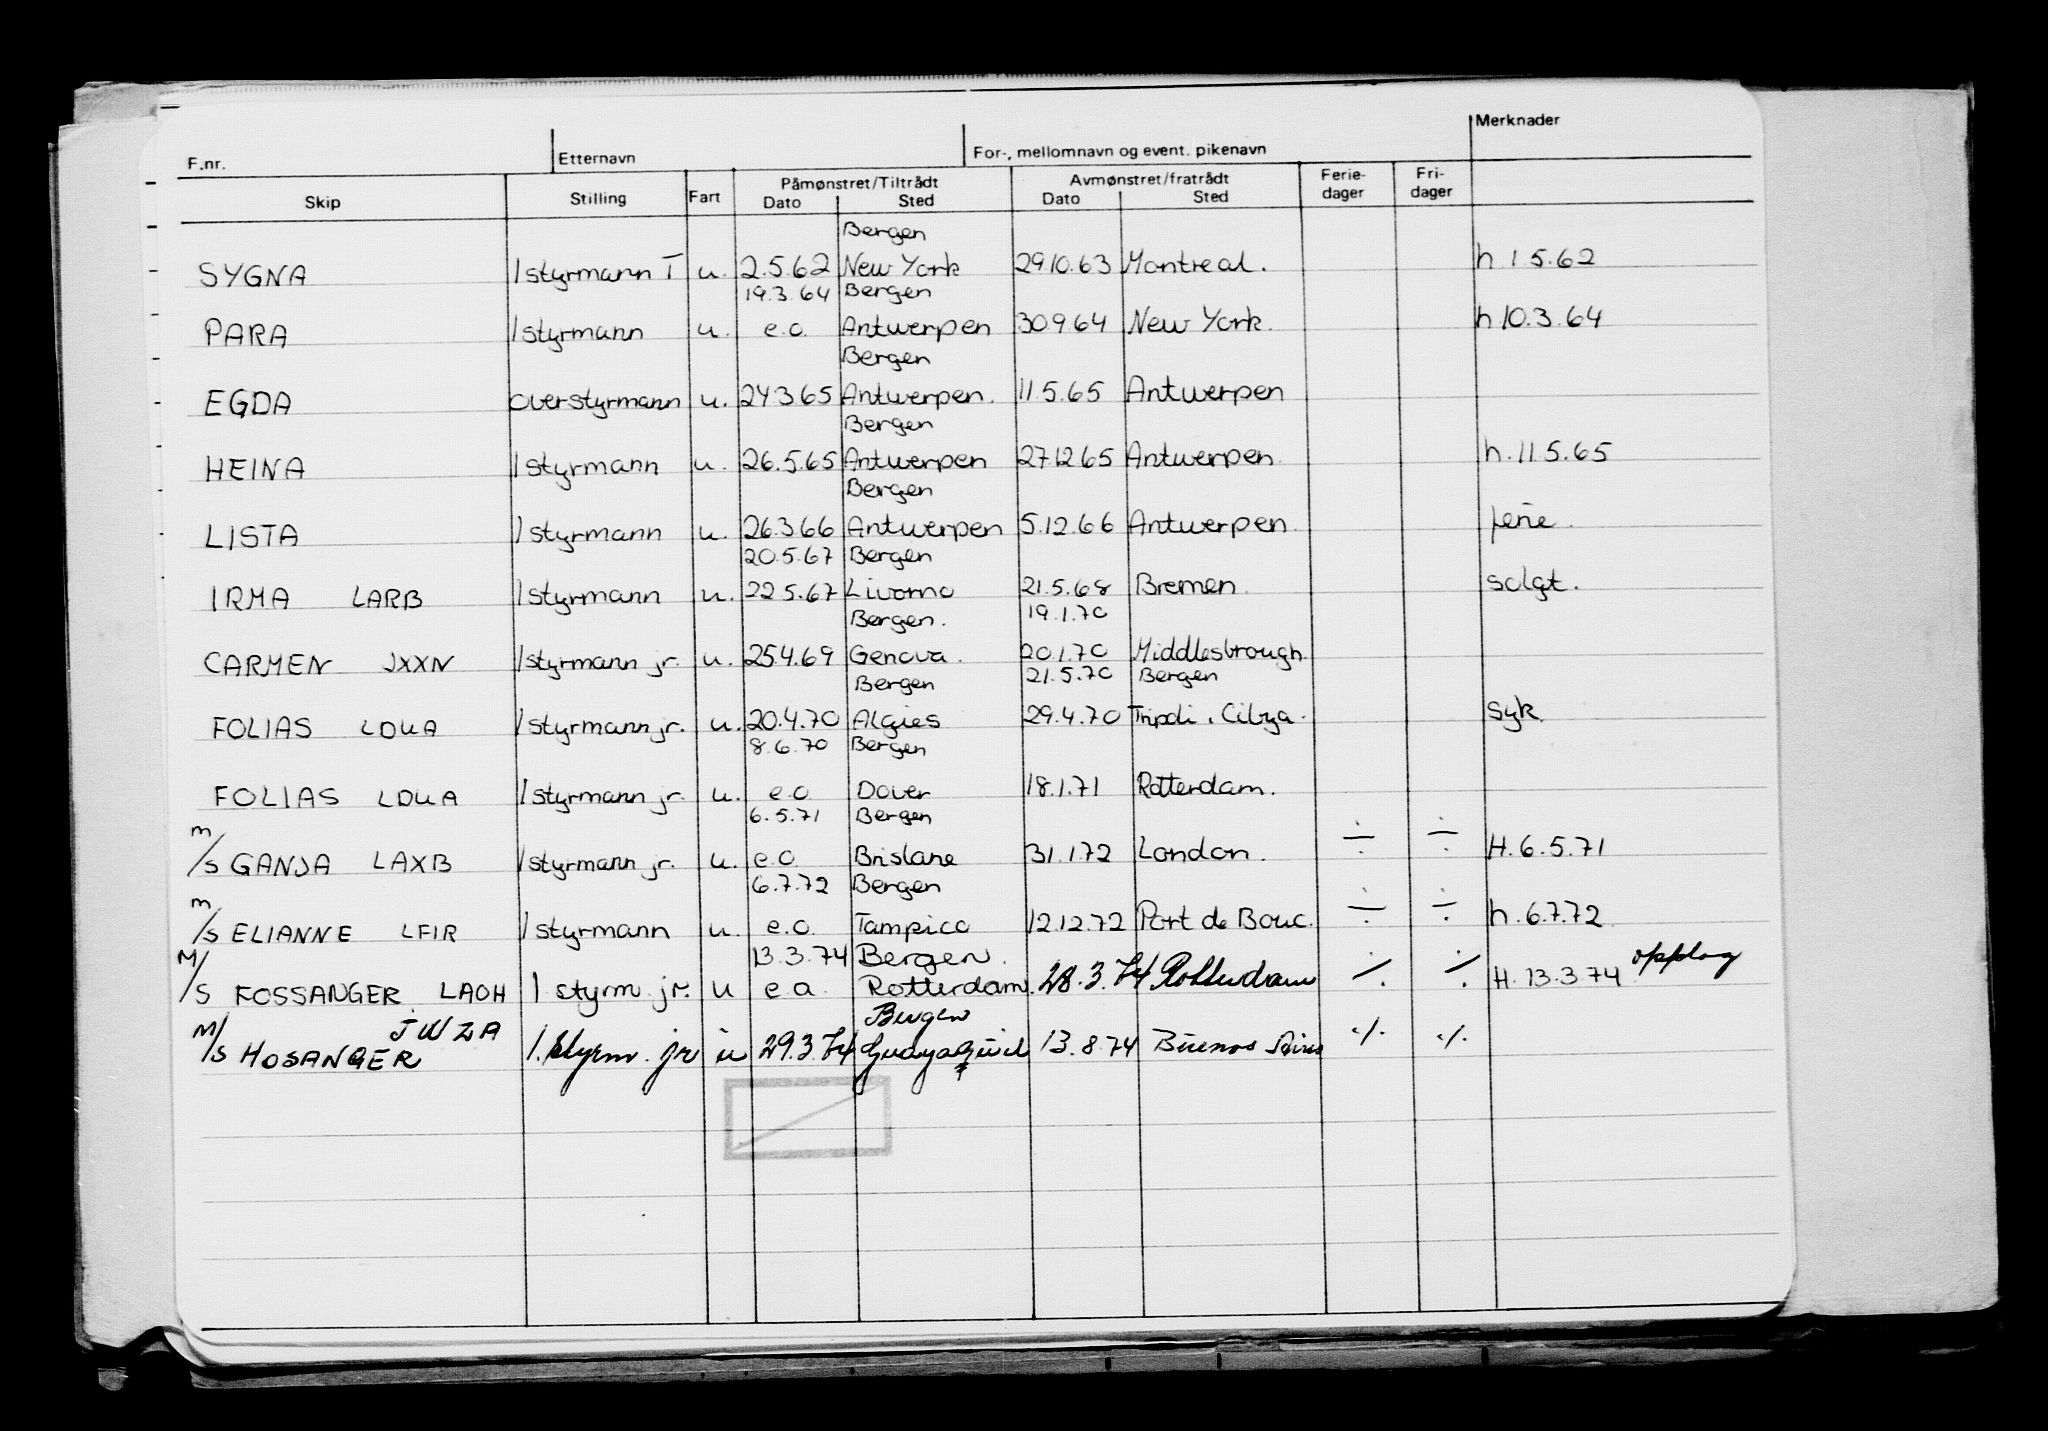 Merknader
F.nr. Etternavn For-, mellomnavn og event. pikenavn
Påmønstret/Tiltrådt Avmønstret/fratrådt Ferie- Fri-
Skip Stilling Fart Dato Sted Dato Sted dager dager
Bergen
SYGNA 1 styrmann I u. 2.5.62 New York 29.10.63 Montreal. h 1.5.62
19.3.64 Bergen
PARA 1 styrmann u. e.o. Antwerpen 30.9.64 New York. h 10.3.64
Bergen
EGDA overstyrmann u. 24.3.65 Antwerpen. 11.5.65 Antwerpen
Bergen
HEINA 1 styrmann u. 26.5.65 Antwerpen 27.12.65 Antwerpen. h. 11.5.65
Bergen
LISTA 1 styrmann u. 26.3.66 Antwerpen 5.12.66 Antwerpen. ferie.
20.5.67 Bergen
IRMA LARB 1 styrmann u. 22.5.67 Livorno 21.5.68 Bremen. solgt.
Bergen. 19.1.70
CARMEN JXXN 1 styrmann jr. u. 25.4.69 Genova. 20.1.70 Middlesbrough.
Bergen 21.5.70 Bergen
FOLIAS LDUA 1 styrmann jr. u. 20.4.70 Algies 29.4.70 Tripoli. Cibya. syk
8.6.70 Bergen
FOLIAS LDUA 1 styrmann jr. u. e.o Dover 18.1.71 Rotterdam.
6.5.71 Bergen
m/s GANJA LAXB 1 styrmann jr. u. e.o. Brisbane 31.1.72 London. ÷ ÷ H. 6.5.71
6.7.72 Bergen
m/s ELIANNE LFIR 1 styrmann u. e.o. Tampico 12.12.72 Port de Bouc. ÷ ÷ h. 6.7.72
13.3.74 Bergen. opplag
M/S FOSSANGER LAOH 1 styrm. jr. u e.o. Rotterdam. 28.3.74 Rotterdam ⁒ ⁒ H. 13.3.74
JWZA Bergen
M/S HOSANGER 1. styrm. jr u 29.3.74 Guayaquil 13.8.74 Buenos Aires ⁒ ⁒